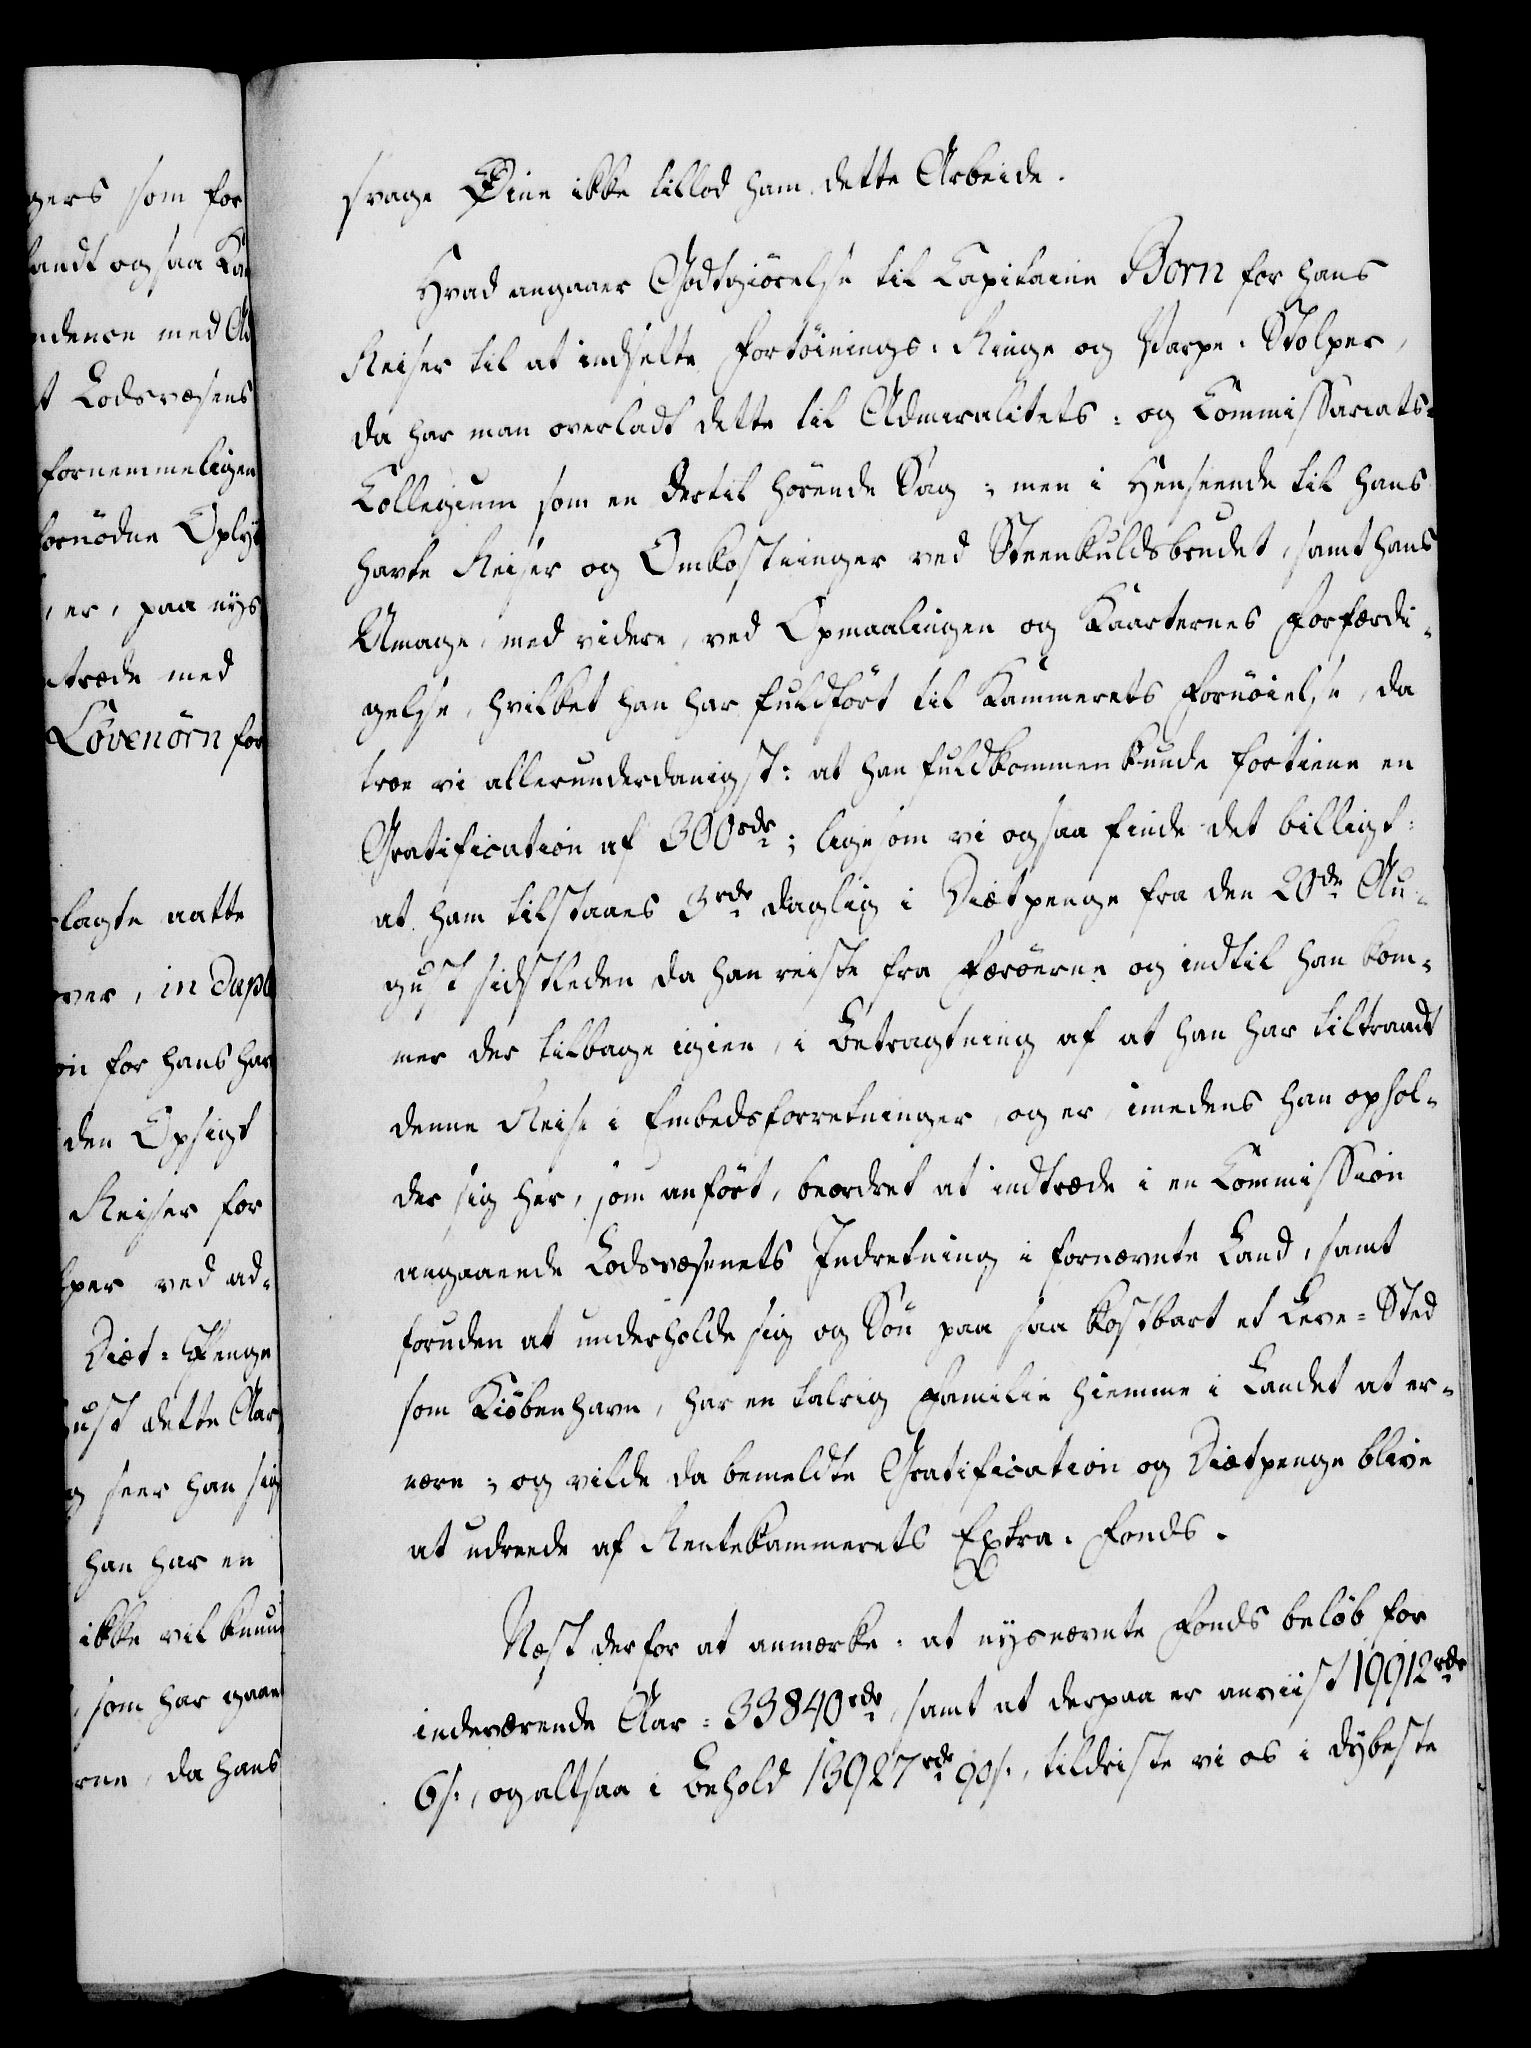 gers som for
landt ogsaa Kar
ndence med Ad
t Lodsvæsens
fornemmeligen
fornödne Oplys
er, paa nys
træde med
Lövenörn for
lagte aatte
ver, in dupl
on for hans har
den Opsigt
Reiser for
lper ved ad-
Diæt-Penge
ust dette Aar
g seer han sig
han har en
ikke vil kunn
som har gaae
rne, da hans
svage Øine ikke tillod ham dette Arbeide.
Hvad angaaer Godtgiörelse til Capitaine Born for hans
Reiser til at indsette Fortöinings-Ringe og Varpe-Stolper,
da har man overladt dette til Admiralitets- og Commissariats-
Collegium som en dertil hörende Sag; men i Henseende til hans
havte Reiser og Omkostninger ved Steenkuldsbrudet, samt hans
Umage, med videre, ved Opmaalingen og Kaarternes Forfærdi-
gelse, hvilket han har fuldfört til Kammerets Fornöielse, da
troe vi allerunderdanigst: at han fuldkommen kunde fortiene en
Gratification af 300 rdr; ligesom vi ogsaa finde det billigt:
at ham tilstaaes 3 rdr daglig i Diætpenge fra den 20de Au-
gust sidstleden da han reiste fra Færöerne og indtil han kom-
mer der tilbage igien, i Betragtning af at han har tiltraadt
denne Reise i Embedsforretninger, og er, imedens han ophol-
der sig her, som anfört, beordret at indtræde i en Commission
angaaende Lodsvæsenets Indretning i fornævnte Land, samt
foruden at underholde sig og Sön paa saa kostbart et Leve-Sted
som Kiöbenhavn, har en talrig Familie hiemme i Landet at er-
nære; og vilde da bemeldte Gratification og Diætpenge blive
at udrede af Rentekammerets Extra-Fonds.
Næst derfor at anmærke: at nysnævnte Fonds belöb for
indeværende Aar = 33840 rdr, samt at derpaa er anviist 19912 rdr
6 s:, og altsaa i Behold 13927 rdr 90 s:, tildriste vi os i dybeste